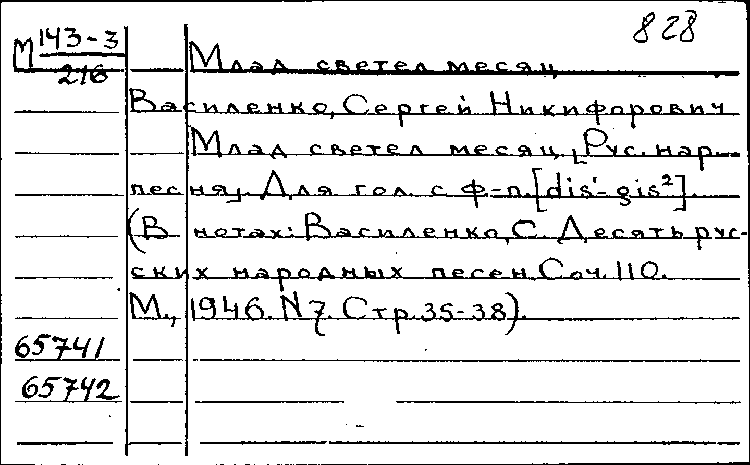 828
М 143-3
216
Млад светел месяц
Василенко, Сергей Никифорович
Млад светел месяц. [Рус. нар.
песня]. Для гол. с ф-п. [dis¹-gis²].
(В нотах: Василенко, С. Десять рус-
ских народных песен. Соч. 110.
М., 1946. N 7. Стр. 35-38).
65741
65742